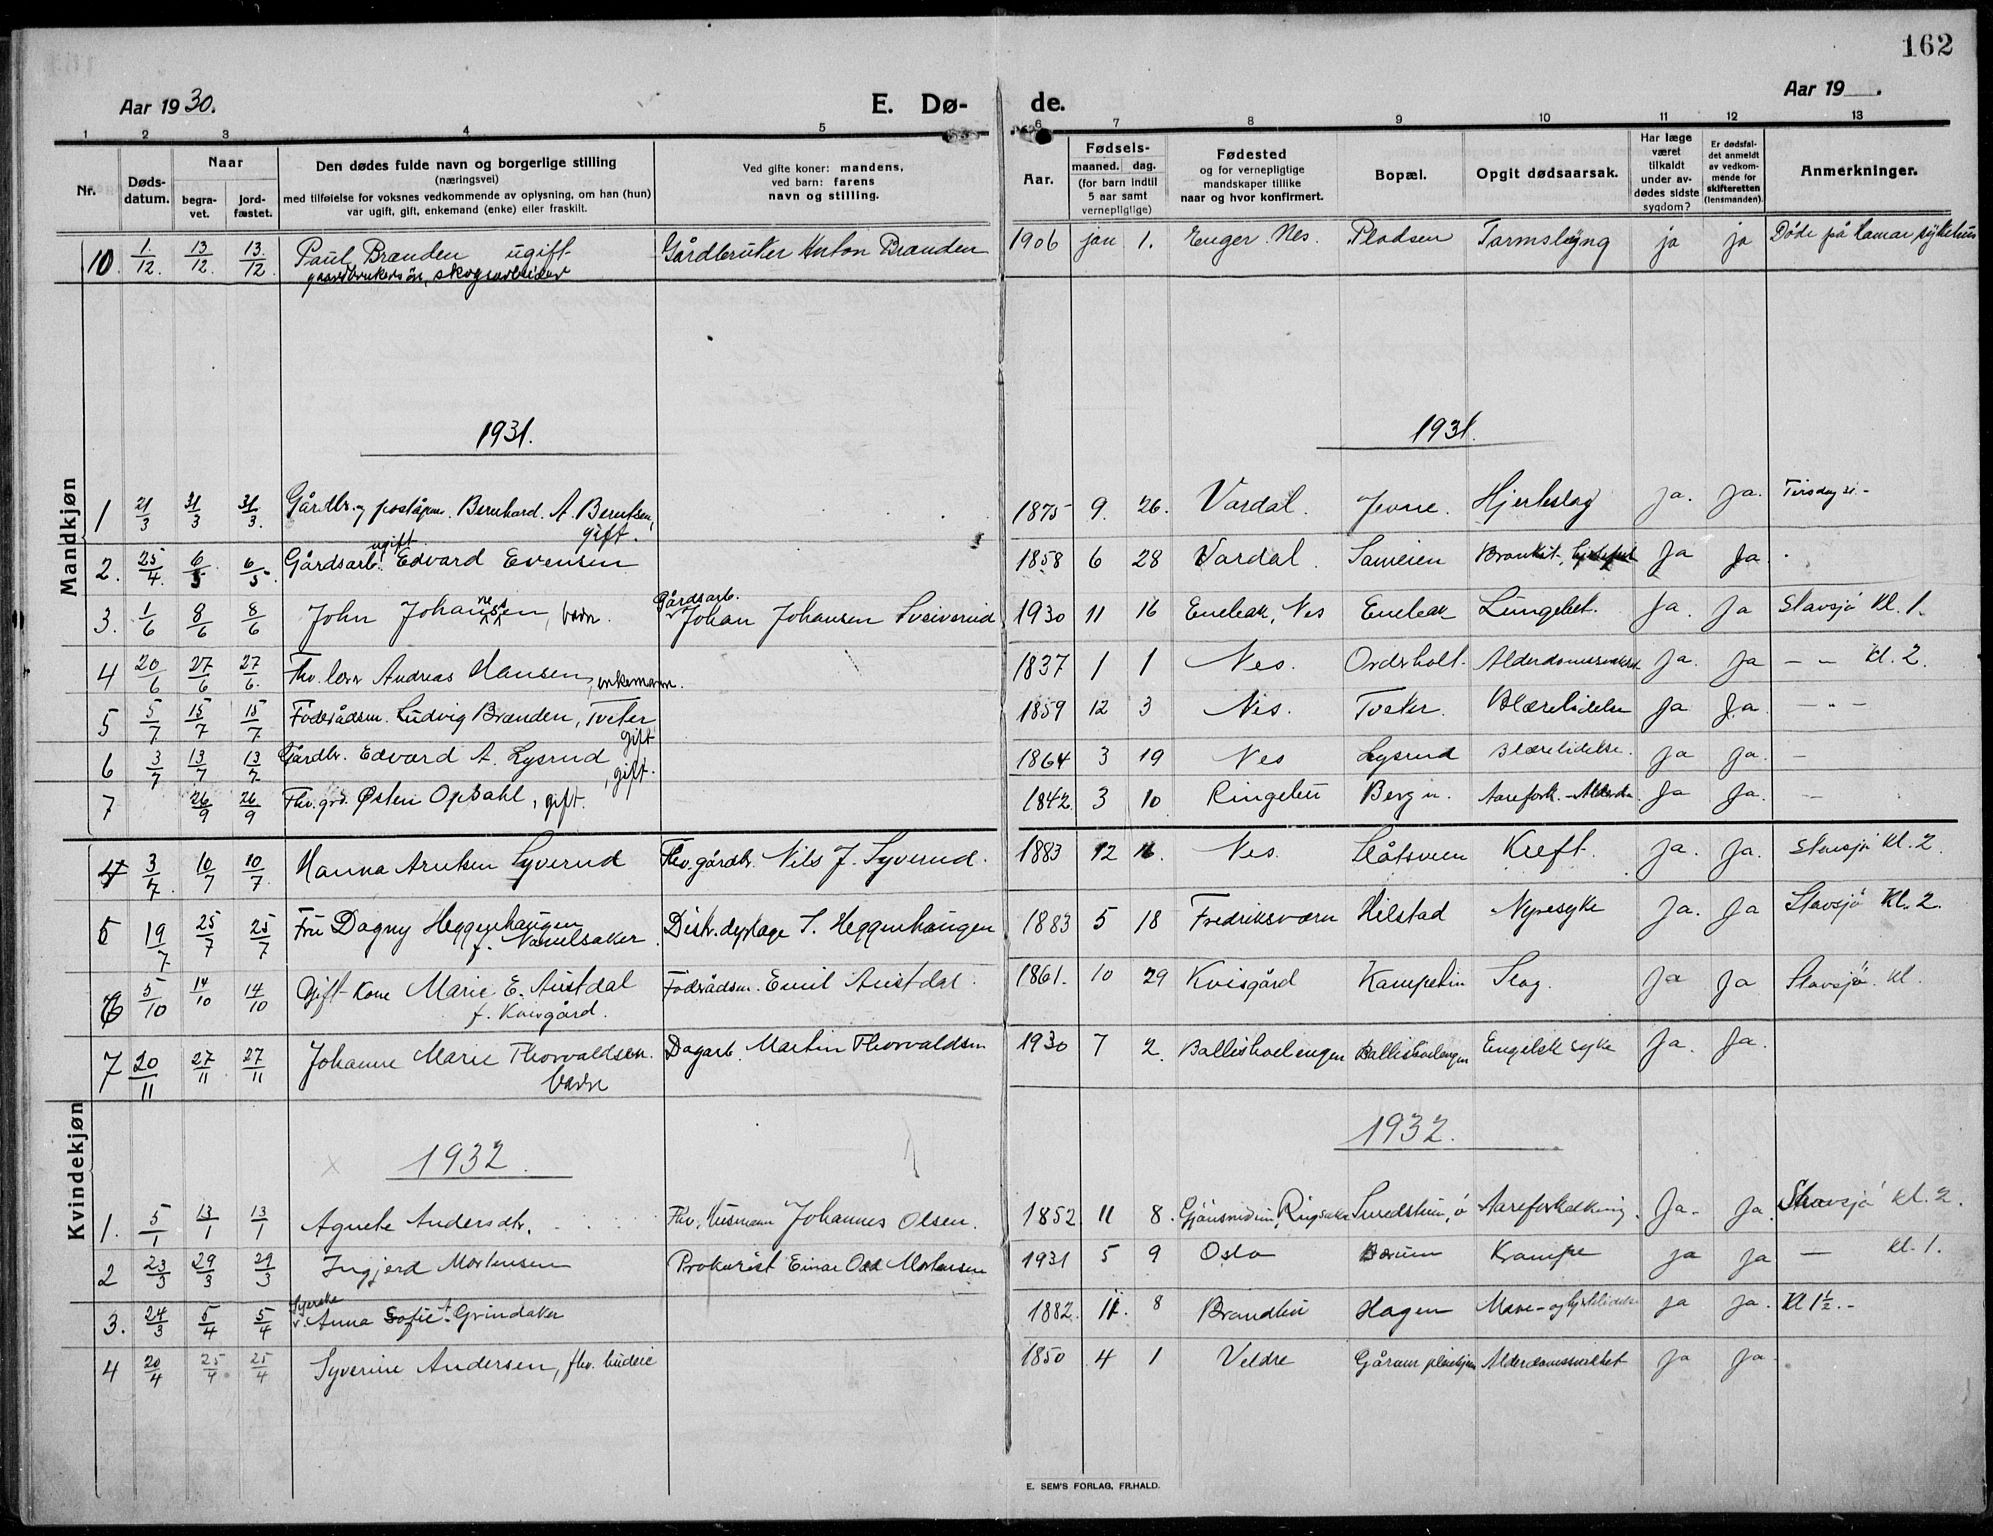 162
Aar 1930. E. Dø- de. Aar 19 .
1 2 3 4 5 6 7 8 9 10 11 12 13
Nr. Døds-datum. Naar begra-vet. jord-fæstet. Den dødes fulde navn og borgerlige stilling (næringsvei) med tilføielse for voksnes vedkommende av oplysning, om han (hun) var ugift, gift, enkemand (enke) eller fraskilt. Ved gifte koner: mandens, ved barn: farens navn og stilling. Aar. Fødsels- maaned. dag. (for barn indtil 5 aar samt vernepligtige) Fødested og for vernepligtige mandskaper tillike naar og hvor konfirmert. Bopæl. Opgit dødsaarsak. Har læge været tilkaldt under av-dødes sidste sygdom? Er dødsfal-det anmeldt av vedkom-mende for skifteretten (lensmanden). Anmerkninger.
10. 1/12. 13/12. 13/12. Paul Brænden ugift Gårdbruker Anton Brænden 1906 jan 1. Enger. Nes. Pladsen Tarmslyng ja ja Døde på Hamar sykehus
gaardbrukersøn, skogsarbeider
1931. 1931.
Mandkjøn
1 21/3 31/3 31/3. Gårdbr. og poståpner. Bernhard. A. Berntsen, gift. 1875 9. 26. Vardal. Jevne. Hjerteslag ja. ja. Tirsdag 31.-
2. 25/4. 6/5 6/5. Gårdsarb. ugift. Edvard Evensen 1858 6 28 Vardal. Sameien Ja Ja.
3. 1/6 8/6 8/6 John Johannessen, barn. Gårdsarb. Johan Johansen Sveiverud 1930 11 16 Enebak, Nes Enebak Lungebet. Ja. Ja Stavsjø Kl. 1.
4 20/6 27/6 27/6. Fhv. lærer Andreas Hansen, enkemann. 1837 1 1 Nes. Ordsholt. Ja. Ja — — Kl. 2.
5 5/7 15/7 15/7. Foderådsm. Ludvig Brænden, Tveter gift 1859 12 3 Nes. Tveter. Blærelidelse Ja Ja. — " —
6 3/7 13/7 13/7. Gårdbr. Edvard A. Lysrud, gift. 1864 3 19 Nes Lysrud Blærelidelse. Ja Ja. —
7 26/9 26/9 Fhv. grd. Østen Opdahl, gift. 1842. 3 10 Ringebu Berg n. Aarefork. - Ja Ja. —
Kvindekjøn
4 3/7. 10/7 10/7. Hanna Arntsen Syverud Fhv. gårdbr. Nils J. Syverud. 1883 12 16. Nes. Slåtsveen Kreft. Ja. Ja. Stavsjø Kl. 2.
5 19/7 25/7 25/7 Fru Dagny Heggenhaugen f. Nannelsaker. Distr. dyrlæge S. Heggenhaugen 1883 5 18 Fredriksværn Hilstad Nyresyke Ja. Ja Stavsjø Kl. 2.
6 5/10 14/10 14/10 Gift Kone Marie E. Austdal f. Kvisgård. Foderådsm. Emil Austdal. 1861. 10 29 Kvisgård Kampetin Slag. Ja Ja Stavsjø. Kl.
7 20/11 27/11 27/11 Johanne Marie Thorvaldsen. barn Dagarb. Martin Thorvaldsen 1930 7 2. Ballishoelengen Ballishoelengen Engelsk syke Ja. Ja.
1932. 1932.
1. 5/1 13/1 13/1 Agnete Andersdtr. Fhv. husmann Johannes Olsen. 1852 11 8. Ringsaker Aareforkalkning. Ja. Ja. Stavsjø Kl. 2.
2 23/3 29/3 29/3 Ingjerd Mortensen Prokurist Einar Odd Mortensen 1931 5 9 Oslo Bærum Krampe ja Ja — Kl. 1.
3. 24/3 5/4 5/4 Syerske Anna Sofie Grindaker 1882. 11. 8 Brandbu Hagen Mave- og hjertelidelse ja Ja. Kl 1½.-
4 20/4 25/4. 25/4 Syverine Andersen, fhv. budeie 1850 4 1 Veldre Gårum pleiehjem Alderdomssvakhet Ja Ja.
E. SEM'S FORLAG, FR.HALD.